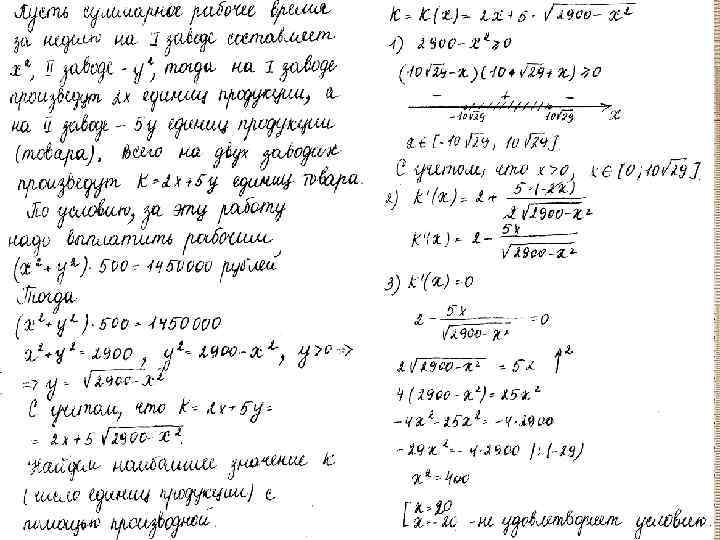 Пусть суммарное рабочее время
за неделю на I заводе составляет
x², II заводе - y², тогда на I заводе
произведут 2x единиц продукции, а
на II заводе – 5y единиц продукции
(товара). Всего на двух заводах
произведут K=2x+5y единиц товара.
По условию, за эту работу
надо выплатить рабочим
(x²+y²)·500=1450000 рублей
Тогда
(x²+y²)·500=1450000
x²+y²=2900, y²=2900-x², y>0 =>
=> y= √2900-x²
С учетом, что K=2x+5y=
=2x+5√2900-x².
Найдем наибольшее значение K
(число единиц продукции) с
помощью производной.
K=K(x)=2x+5·√2900-x²
1) 2900-x²≥0
(10√29-x)(10+√29+x)≥0
- + -
-10√29 10√29 x
x∈[-10√29; 10√29]
С учетом, что x>0, x∈[0;10√29].
2) K'(x)=2+ 5·(-2x) / 2√2900-x²
K'(x)=2- 5x / √2900-x²
3) K'(x)=0
2- 5x / √2900-x² =0
2√2900-x² =5x ↑²
4(2900-x²)=25x²
-4x²-25x²=-4·2900
-29x²=-4·2900 |:(-29)
x²=400
[x=20
x=-20 -не удовлетворяет условию.